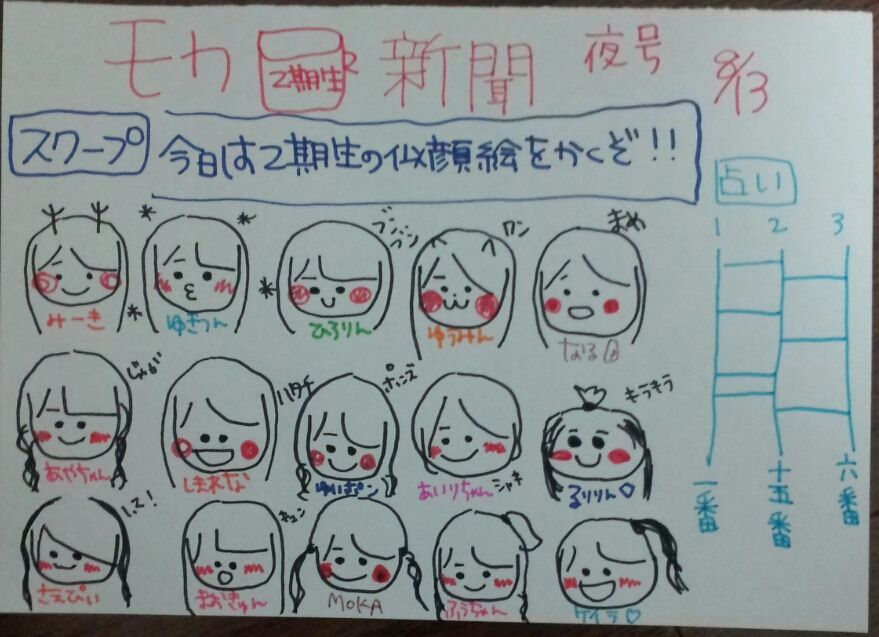 モカ 2期生 新聞 夜号 8/13
スクープ 今日は2期生の似顔絵をかくぞ!!
占い
1 2 3
ブンブン
ワン
まめ
みーき ゆきつん ひろりん ゆうみん なる
じゃが
ハタチ
ポンズ
キラキラ
あやちゃん しまれな ゆいぽン あいりちゃん シャキ るりりん♡
キュン
さえぴぃ まおきゅん MOKA ふうちゃん ケイラ♡
一番 十五番 六番